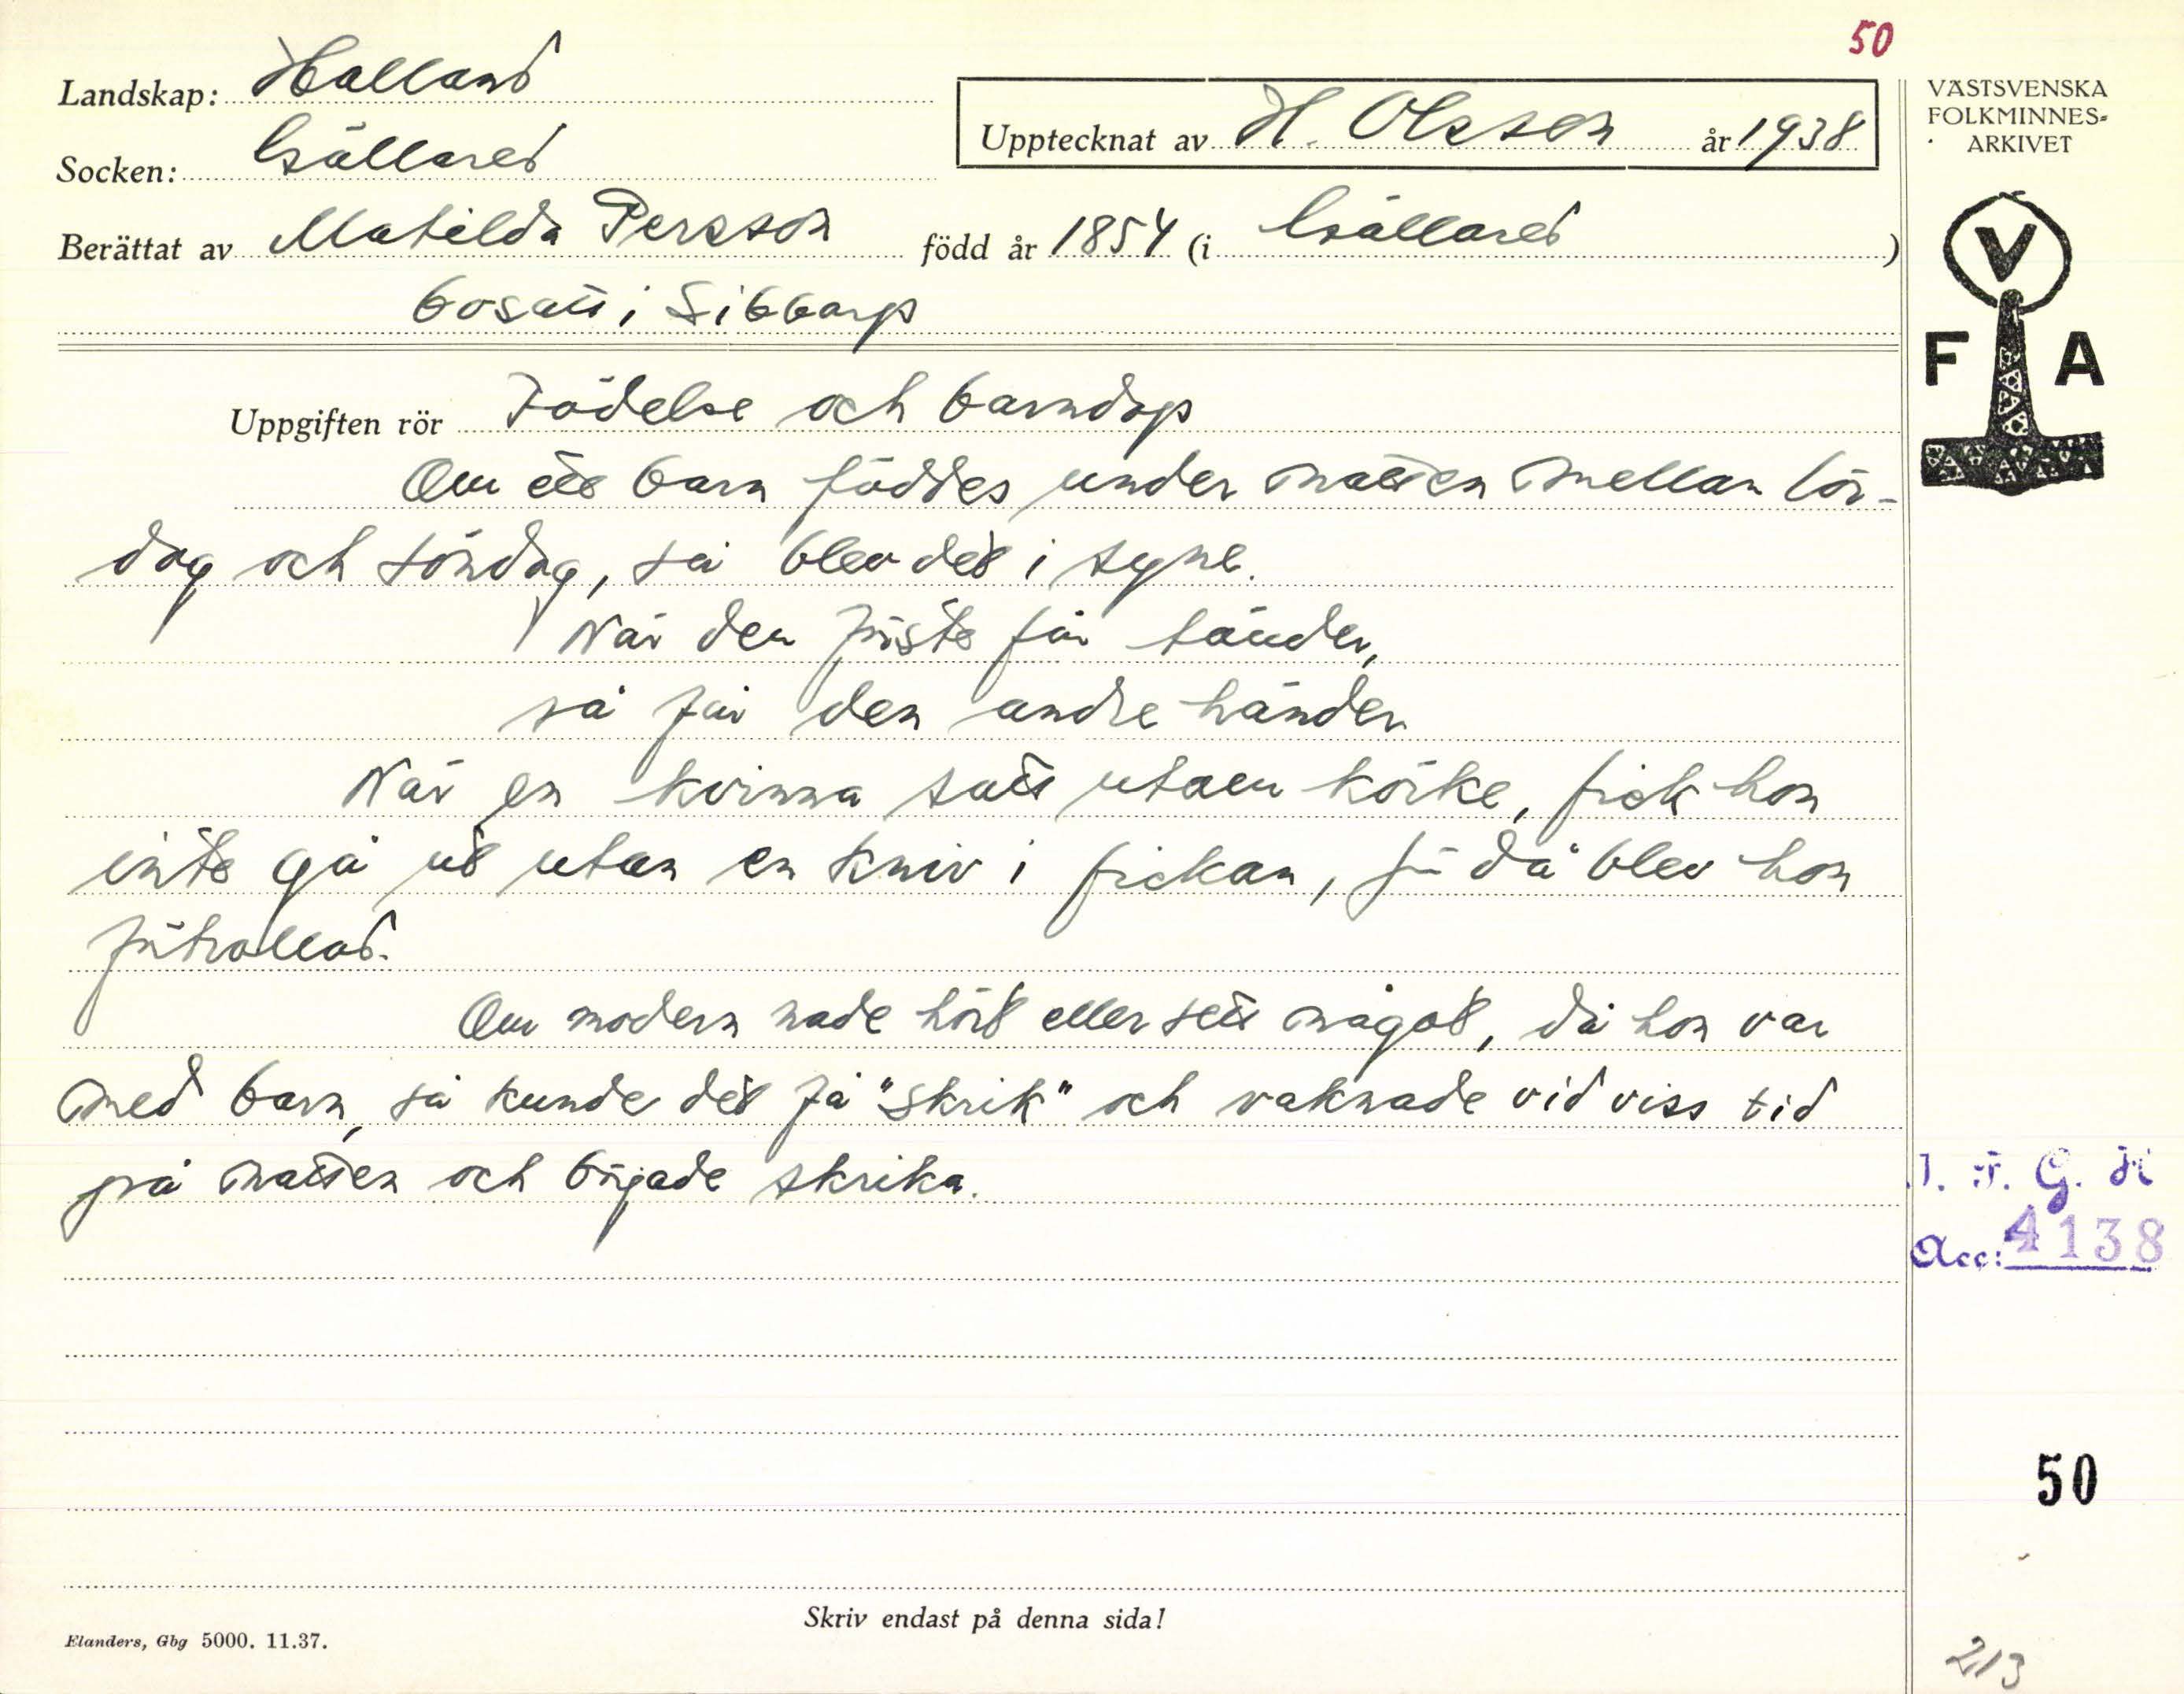 50
Landskap: Halland
Socken: Gällared
Upptecknat av H. Olsson år 1938
VÄSTSVENSKA
FOLKMINNES-
ARKIVET
Berättat av Matilda Persson född år 1854 (i Gällared)
bosatt i Sibbarp
V
F A
Uppgiften rör Födelse och barndop
Om ett barn föddes under natten mellan lör-
dag och söndag, så blev det i syne.
När den först får tänder,
så får den andre händer
När en kvinna satt utaen körke, fick hon
inte gå ut utan en kniv i fickan, för då blev hon
förtrollad.
Om modern hade hört eller sett något, då hon var
med barn, så kunde det få "skrik" och vaknade vid viss tid
på natten och började skrika.
I. F. G. H
Acc: 4138
50
Skriv endast på denna sida!
Elanders, Gbg 5000. 11.37.
213